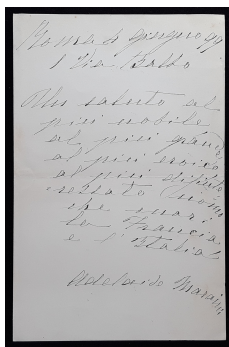 Roma 6 giugno 99
1 Via Balbo
Un saluto al
più nobile
al più grande
al più eroico
al più disinte
ressato uomo
che onori
la Francia
e l'Italia!
Adelaide Maraini